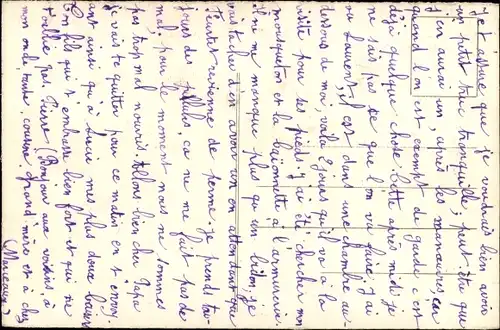 j et assure que je voudrais bien avoir
un petit truc tranquille; peut-être que
j'en aurai un, après les manœuvres, car
quand l'on est exempt de garde c'est
déjà quelque chose. Cette après midi je
ne sais pas ce que l'on va faire. J'ai
vu Laurent, il est dans une chambre au
dessous de moi, voila jours qu'il va à la
visite pour ses pieds. J'ai été chercher mon
mousqueton et la baïonnette à l'armurerie.
il ne me manque plus qu'un bidon, je
vais tacher d'en avoir un en attendant que
revienne de perme. Je prend tou-
jours des pillules, ça ne me fait pas de
mal. pour le moment nous ne sommes
pas trop mal nourris. Allons bien cher Papa
je vais te quitter pour ce matin en t envoy-
ant ainsi qu'à Lucie mes plus doux baisers
Ton fils qui t embrasse bien fort et qui ne
t oublie pas. Pierre (Bonjour aux voisins, à
mon on de tante, cousine, grand mère et à chez
Marceau)